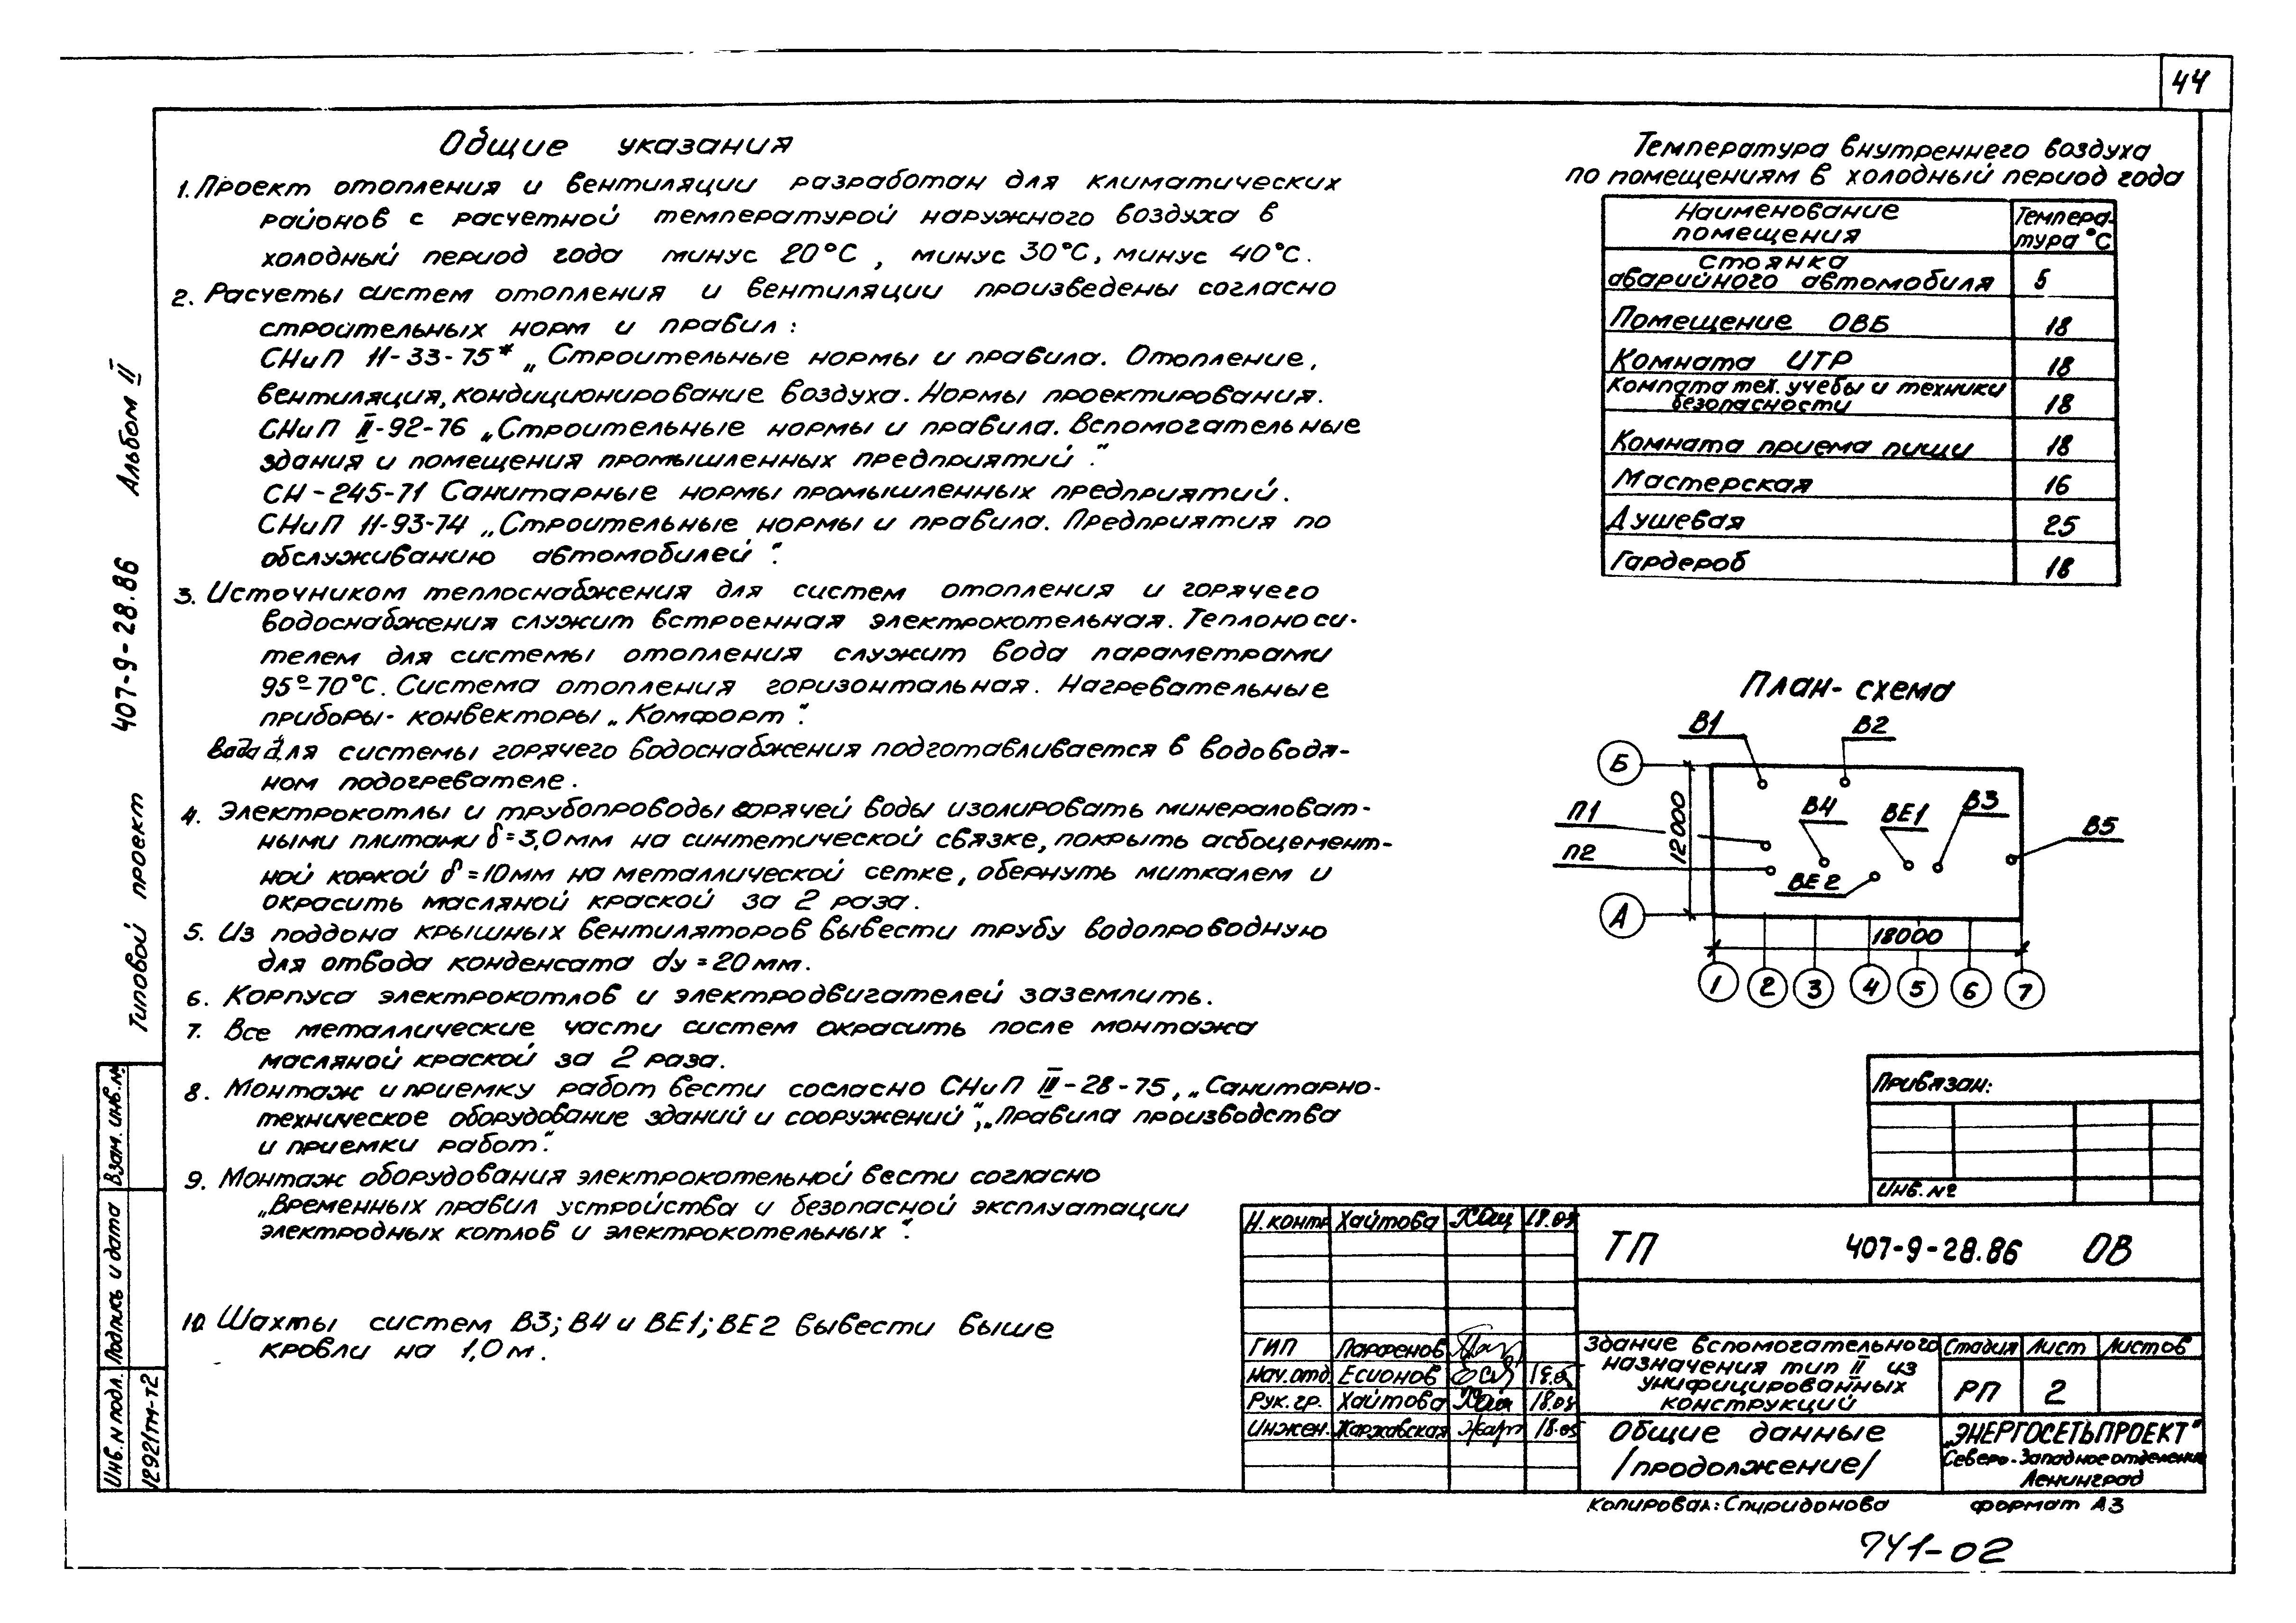 44
Общие указания
1. Проект отопления и вентиляции разработан для климатических
районов с расчетной температурой наружного воздуха в
холодный период года минус 20°С, минус 30°С, минус 40°С.
2. Расчеты систем отопления и вентиляции произведены согласно
строительных норм и правил:
СНиП II-33-75* „Строительные нормы и правила. Отопление,
вентиляция, кондиционирование воздуха. Нормы проектирования.
СНиП II-92-76 „Строительные нормы и правила. Вспомогательные
здания и помещения промышленных предприятий".
СН-245-71 Санитарные нормы промышленных предприятий.
СНиП II-93-74 „Строительные нормы и правила. Предприятия по
обслуживанию автомобилей".
3. Источником теплоснабжения для систем отопления и горячего
водоснабжения служит встроенная электрокотельная. Теплоноси-
телем для системы отопления служит вода параметрами
95°-70°С. Система отопления горизонтальная. Нагревательные
приборы- конвекторы „Комфорт".
Вода для системы горячего водоснабжения подготавливается в водоводя-
ном подогревателе.
4. Электрокотлы и трубопроводы горячей воды изолировать минераловат-
ными плитами δ=3,0мм на синтетической связке, покрыть асбоцемент-
ной коркой δ=10мм на металлической сетке, обернуть миткалем и
окрасить масляной краской за 2 раза.
5. Из поддона крышных вентиляторов вывести трубу водопроводную
для отвода конденсата dу=20мм.
6. Корпуса электрокотлов и электродвигателей заземлить.
7. Все металлические части систем окрасить после монтажа
масляной краской за 2 раза.
8. Монтаж и приемку работ вести согласно СНиП III-28-75, „Санитарно-
техническое оборудование зданий и сооружений", „Правила производства
и приемки работ".
9. Монтаж оборудования электрокотельной вести согласно
„Временных правил устройства и безопасной эксплуатации
электродных котлов и электрокотельных".
10. Шахты систем В3; В4 и ВЕ1; ВЕ2 вывести выше
кровли на 1,0м.
Температура внутреннего воздуха
по помещениям в холодный период года
Наименование помещения Темпера-тура °С
Стоянка аварийного автомобиля 5
Помещение ОВБ 18
Комната ИТР 18
Комната тех. учебы и техники безопасности 18
Комната приема пищи 18
Мастерская 16
Душевая 25
Гардероб 18
План-схема
В1 В2
Б
П1 В4 ВЕ1 В3 В5
12000
П2 ВЕ2
А
18000
1 2 3 4 5 6 7
Привязан:
Инв. №
Н.контр Хайтова 18.05
ТП 407-9-28.86 ОВ
ГИП Парфенов
Нач.отд. Есионов
Рук. гр. Хайтова 18.05
Инжен. Жаржавская 18.05
Здание вспомогательного
назначения тип II из
унифицированных
конструкций
Стадия Лист Листов
РП 2
Общие данные
/продолжение/
„ЭНЕРГОСЕТЬПРОЕКТ"
Северо-Западное отделение
Ленинград
Копировал: Спиридонова формат А3
741-02
Типовой проект 407-9-28.86 Альбом II
Взам. инв. №
Подпись и дата
Инв. N подл.
12921тм-т2